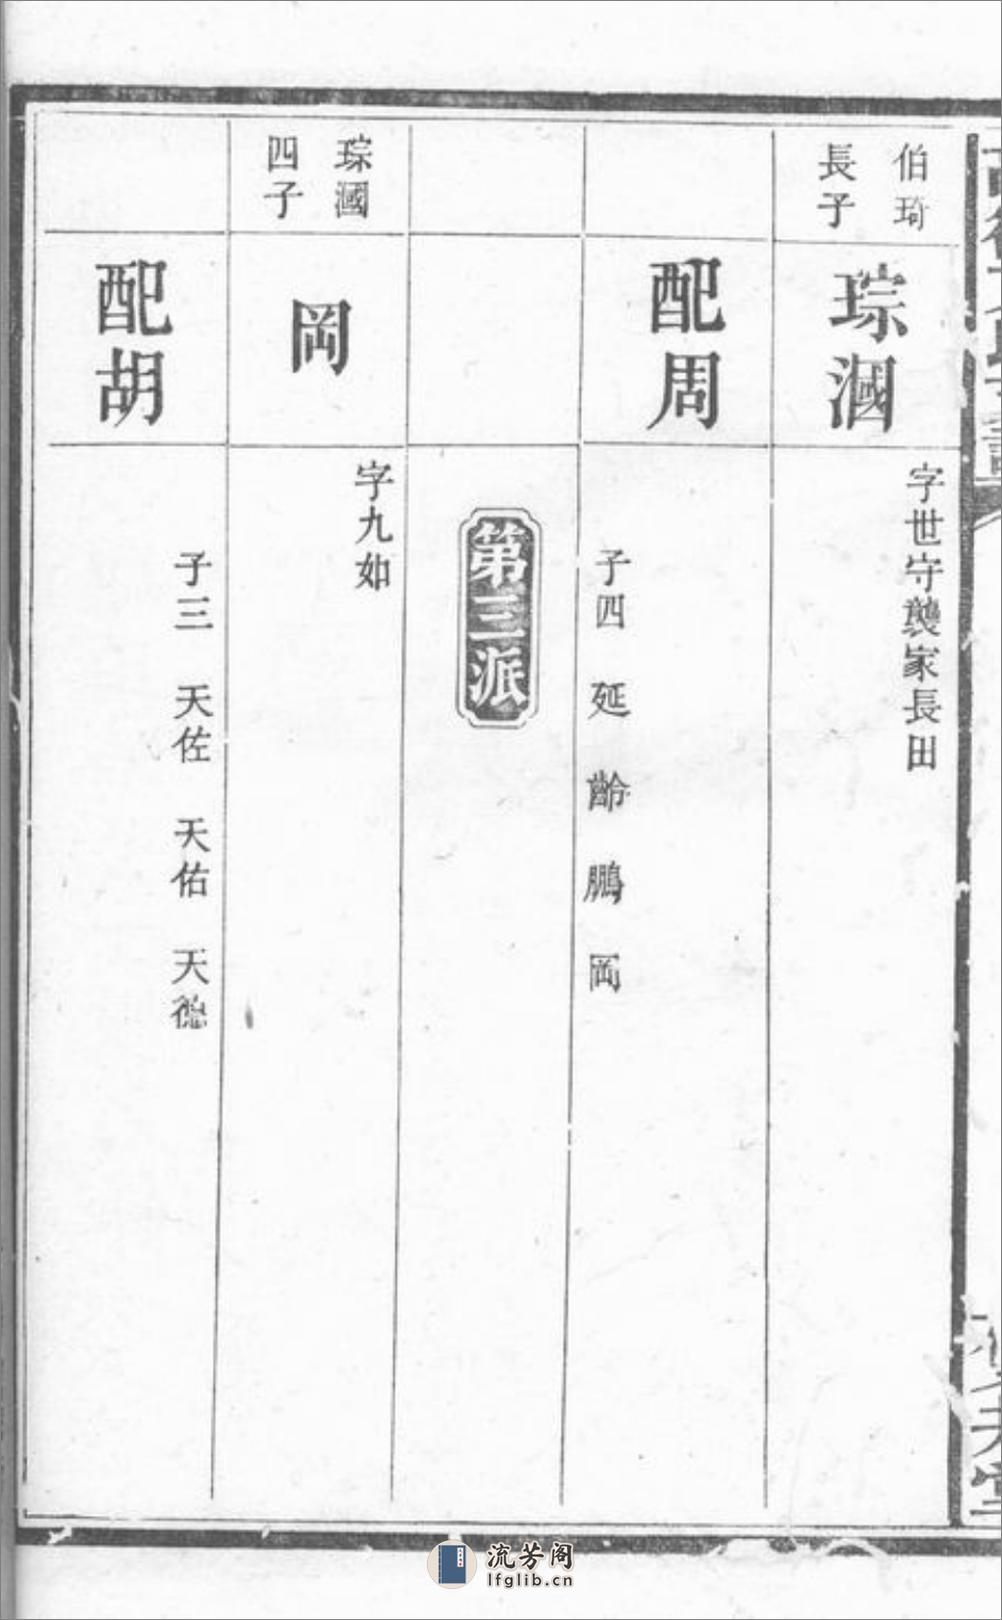 伯琦
長子
琮漍
字世守襲家長田
配周
子四 延 齡 鵬 岡
第三派
琮漍
四子
岡
字九如
配胡
子三 天佐 天佑 天德
流芳阁
lfglib.cn